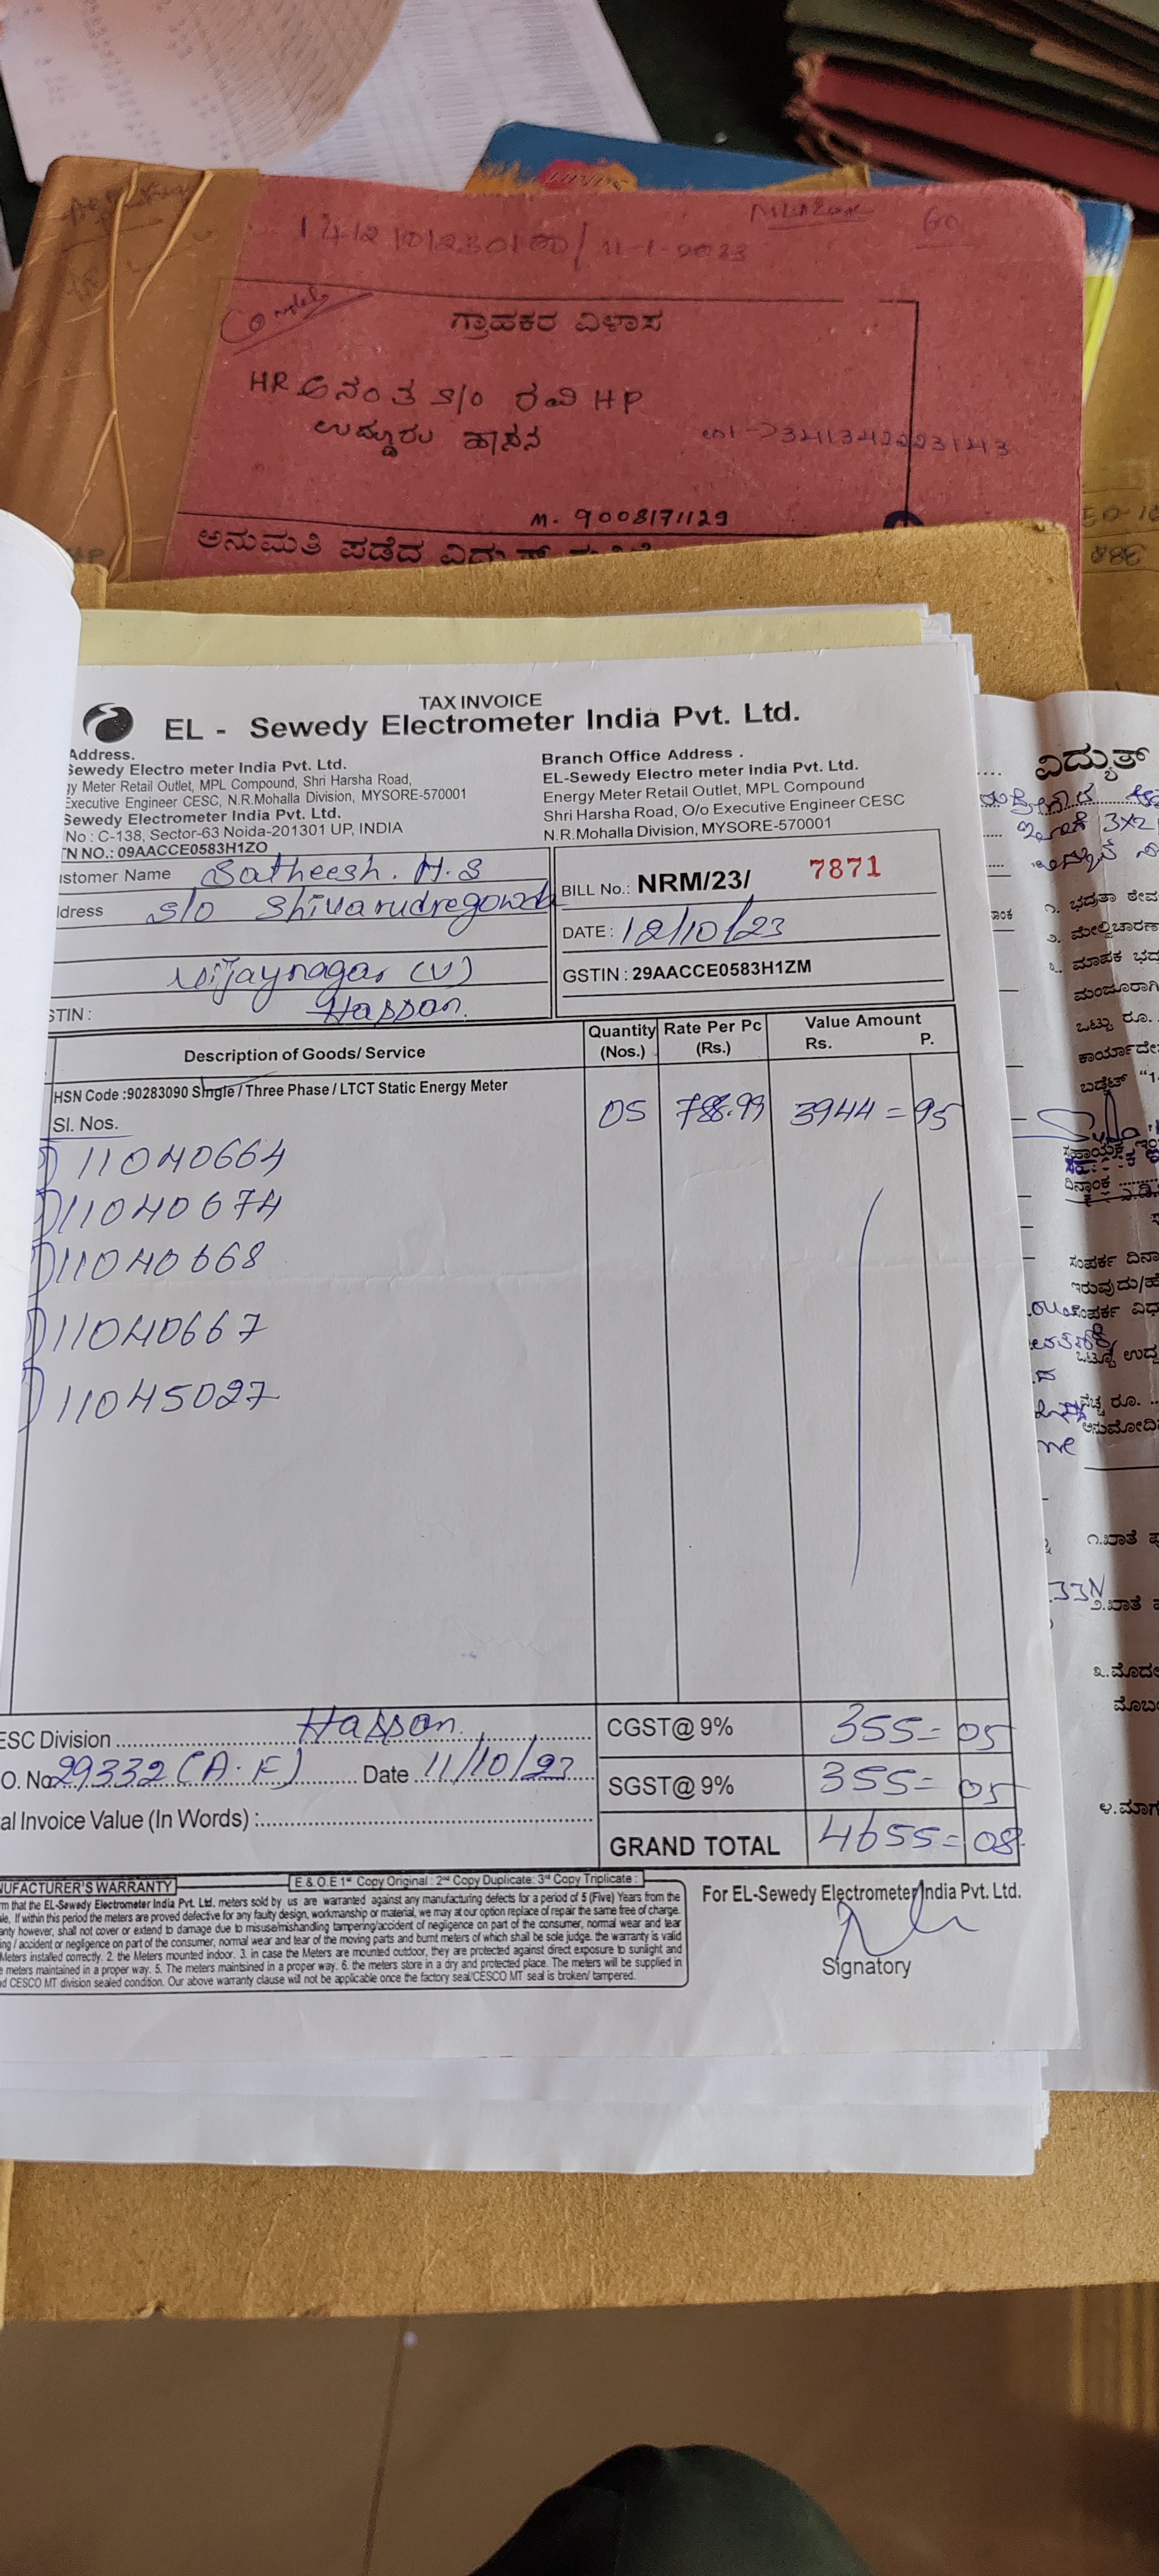 142101230100/11-1-2023
Complet
ಗ್ರಾಹಕರ ವಿಳಾಸ
HR ಅನಂತ S/O ರವಿ HP
ಉದ್ದೂರು ಹಾಸನ
M. 9008171129
ಅನುಮತಿ ಪಡೆದ
TAX INVOICE
EL - Sewedy Electrometer India Pvt. Ltd.
Address.
Sewedy Electro meter India Pvt. Ltd.
gy Meter Retail Outlet, MPL Compound, Shri Harsha Road,
Executive Engineer CESC, N.R.Mohalla Division, MYSORE-570001
Sewedy Electrometer India Pvt. Ltd.
No : C-138, Sector-63 Noida-201301 UP, INDIA
TN NO.: 09AACCE0583H1ZO
Branch Office Address .
EL-Sewedy Electro meter India Pvt. Ltd.
Energy Meter Retail Outlet, MPL Compound
Shri Harsha Road, O/o Executive Engineer CESC
N.R.Mohalla Division, MYSORE-570001
ustomer Name Satheesh. H.S
ldress S/O Shivarudregowda
Vijaynagar (V)
STIN : Hassan.
BILL No.: NRM/23/ 7871
DATE : 12/10/23
GSTIN : 29AACCE0583H1ZM
Description of Goods/ Service
Quantity (Nos.)
Rate Per Pc (Rs.)
Value Amount
Rs. P.
HSN Code :90283090 Single / Three Phase / LTCT Static Energy Meter
Sl. Nos.
05 788.99 3944=95
11040664
11040674
11040668
11040667
11045027
ESC Division Hassan.
O. No 29332 (A.E) Date 11/10/23
al Invoice Value (In Words) :
CGST@ 9% 355=05
SGST@ 9% 355=05
GRAND TOTAL 4655=08
NUFACTURER'S WARRANTY
E & O.E 1st Copy Original : 2nd Copy Duplicate: 3rd Copy Triplicate :
rm that the EL-Sewedy Electrometer India Pvt. Ltd. meters sold by us are warranted against any manufacturing defects for a period of 5 (Five) Years from the
le. If within this period the meters are proved defective for any faulty design, workmanship or material, we may at our option replace of repair the same free of charge.
anty however, shall not cover or extend to damage due to misuse/mishandling tampering/accident of negligence on part of the consumer, normal wear and tear
ing / accident or negligence on part of the consumer, normal wear and tear of the moving parts and burnt meters of which shall be sole judge. the warranty is valid
Meters installed correctly. 2. the Meters mounted indoor. 3. in case the Meters are mounted outdoor, they are protected against direct exposure to sunlight and
e meters maintained in a proper way. 5. The meters maintsined in a proper way. 6. the meters store in a dry and protected place. The meters will be supplied in
d CESCO MT division sealed condition. Our above warranty clause will not be applicable once the factory seal/CESCO MT seal is broken/ tampered.
For EL-Sewedy Electrometer India Pvt. Ltd.
Signatory
ವಿದ್ಯುತ್
೧. ಭದ್ರತಾ ಠೇವ
೨. ಮೇಲ್ವಿಚಾರಣಾ
೩. ಮಾಪಕ ಭದ್ರ
ಮಂಜೂರಾಗಿ
ಒಟ್ಟು ರೂ.
ಕಾರ್ಯಾದೇ
ಬಡ್ಜೆಟ್ "1
ದಿನಾಂಕ
ಸಂಪರ್ಕ ದಿನಾ
ಇರುವುದು/ಹೆ
ಸಂಪರ್ಕ ವಿಧ
ಒಟ್ಟೂ ಉದ್ದ
ವೆಚ್ಚ ರೂ.
ಅನುಮೋದಿ
೧.ಖಾತೆ
೨.ಖಾತೆ
೩.ಮೊದಲ
ಮೊಬ
೪.ಮಾರ್ಗ